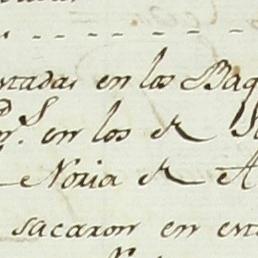 ntadas en los Baq
n.s en los de S
Noria de A
sacaron en est